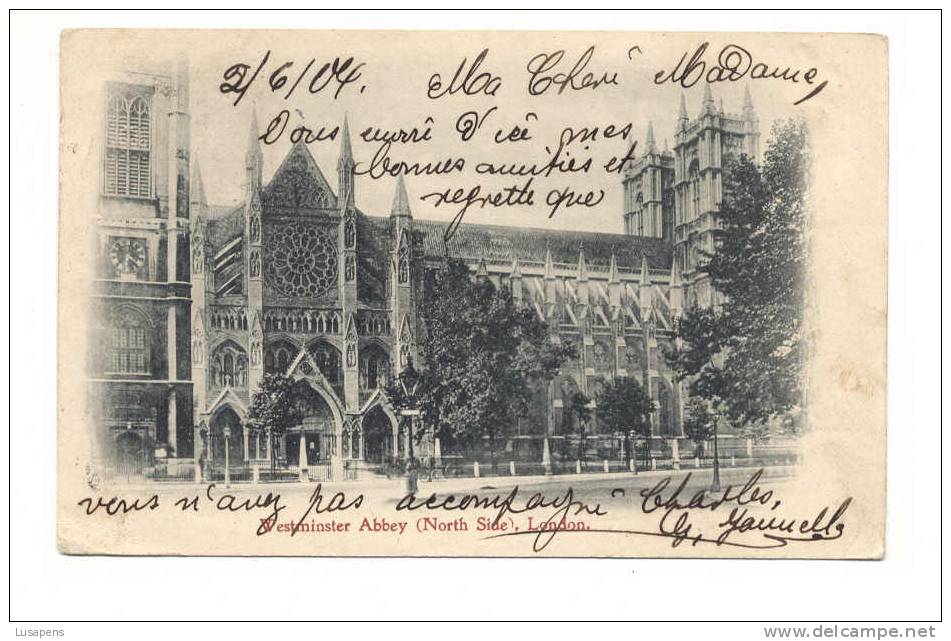 2/6/04. Ma Cheri Madame,
Vous envoi d'ici mes
bonnes amities et
regrette que
vous n'avez pas accompagné Charles,
G. Yannells
Westminster Abbey (North Side), London.
Lusapens
www.delcampe.net